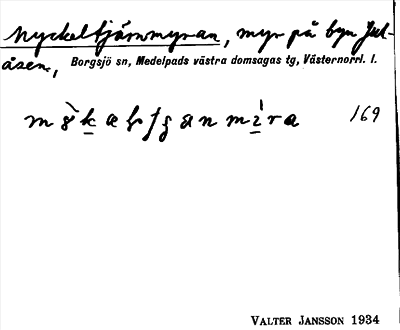 Nyckeltjärnmyran, myr på byn Jul-
åsen, Borgsjö sn, Medelpads västra domsagas tg, Västernorrl. l.
169
VALTER JANSSON 1934